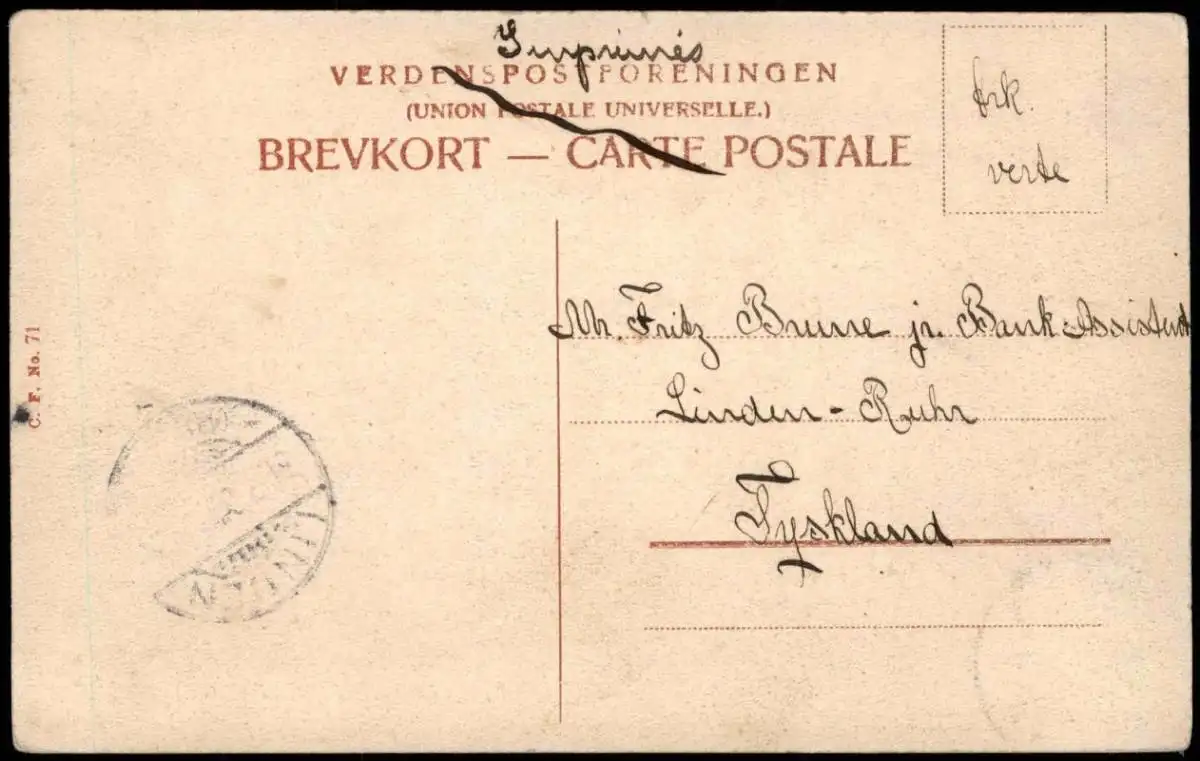 Imprimés
VERDENSPOSTFORENINGEN
(UNION POSTALE UNIVERSELLE.)
BREVKORT — CARTE POSTALE
frk.
verte
Mr. Fritz Brune jr. Bank-Assistent
Linden-Ruhr
Tyskland
C. F. No. 71